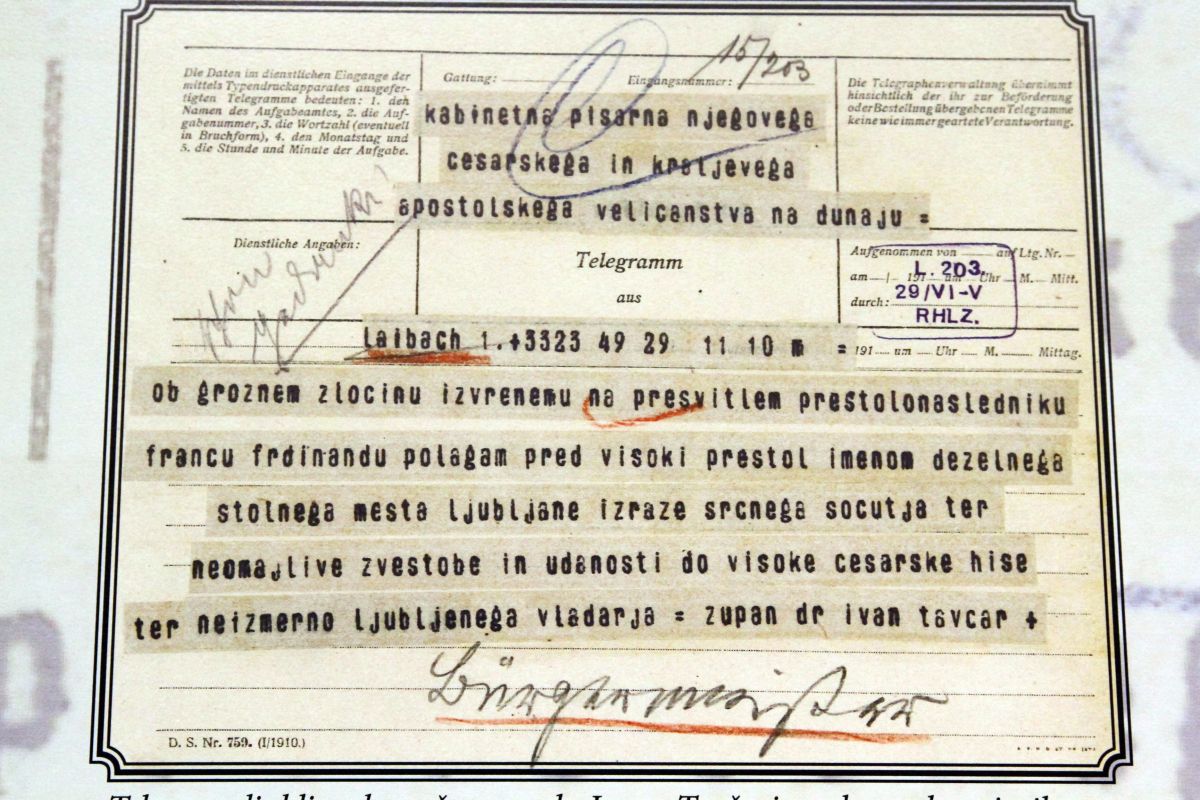 15/203
Die Daten im dienstlichen Eingange der
mittels Typendruckapparates ausgefer-
tigten Telegramme bedeuten: 1. den
Namen des Aufgabeamtes, 2. die Auf-
gabenummer, 3. die Wortzahl (eventuell
in Bruchform), 4. den Monatstag und
5. die Stunde und Minute der Aufgabe.
Gattung: Eingangsnummer:
Die Telegraphenverwaltung übernimmt
hinsichtlich der ihr zur Beförderung
oder Bestellung übergebenen Telegramme
keine wie immer geartete Verantwortung.
kabinetna pisarna njegovega
cesarskega in kraljevega
apostolskega velicanstva na dunaju =
Dienstliche Angaben:
Telegramm
aus
Aufgenommen von auf Ltg. Nr.
am / 191 um Uhr M. Mitt.
durch:
L. 203.
29/VI-V
RHLZ.
laibach 1.+3323 49 29 11 10 m =
191 um Uhr M. Mittag.
ob groznem zlocinu izvrenemu na presvitlem prestolonasledniku
francu frdinandu polagam pred visoki prestol imenom dezelnega
stolnega mesta ljubljane izraze srcnega socutja ter
neomajlive zvestobe in udanosti do visoke cesarske hise
ter neizmerno ljubljenega vladarja = zupan dr ivan tavcar +
Bürgermeister
D. S. Nr. 759. (I/1910.)